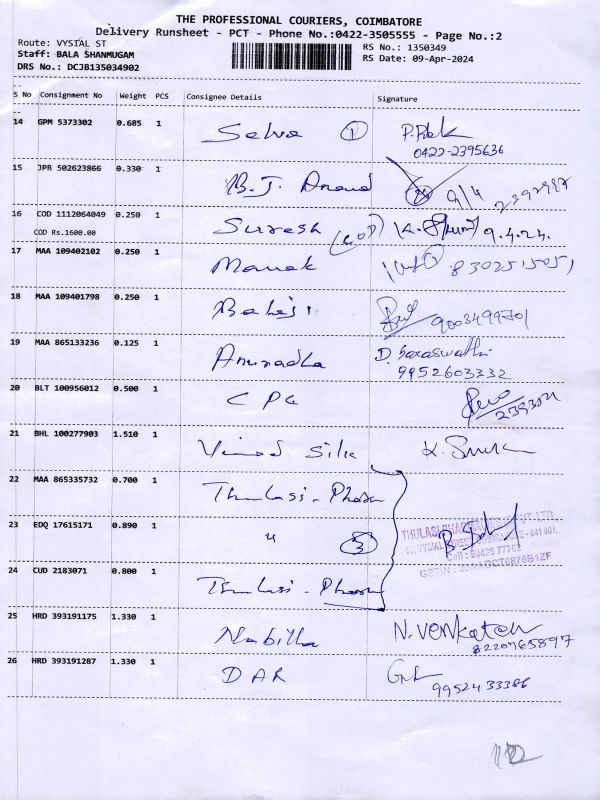 THE PROFESSIONAL COURIERS, COIMBATORE
Delivery Runsheet - PCT - Phone No.:0422-3505555 - Page No.:2
Route: VYSIAL ST
Staff: BALA SHANMUGAM
DRS No.: DCJB135034902
RS No.: 1350349
RS Date: 09-Apr-2024
S No Consignment No Weight PCS Consignee Details Signature
14 GPM 5373302 0.685 1 Selva 1
0422-2395636
15 JPR 502623866 0.330 1 B.J. Anand 9/4
16 COD 1112064049 0.250 1 Suresh (COD) 9.4.24.
COD Rs.1600.00
17 MAA 109402102 0.250 1 Manak
18 MAA 109401798 0.250 1 Balaji
19 MAA 865133236 0.125 1 Anuradha D. Saraswathi
9952603332
20 BLT 100956012 0.500 1 CPC
21 BHL 100277903 1.510 1 Vinod Silk
22 MAA 865335732 0.700 1 Thulasi - Pharm
23 EDQ 17615171 0.890 1 " 3
24 CUD 2183071 0.800 1 Thulasi - Pharm
25 HRD 393191175 1.330 1 Nabilla N. Venkatesh
8220765897
26 HRD 393191287 1.330 1 DAR
9952433386